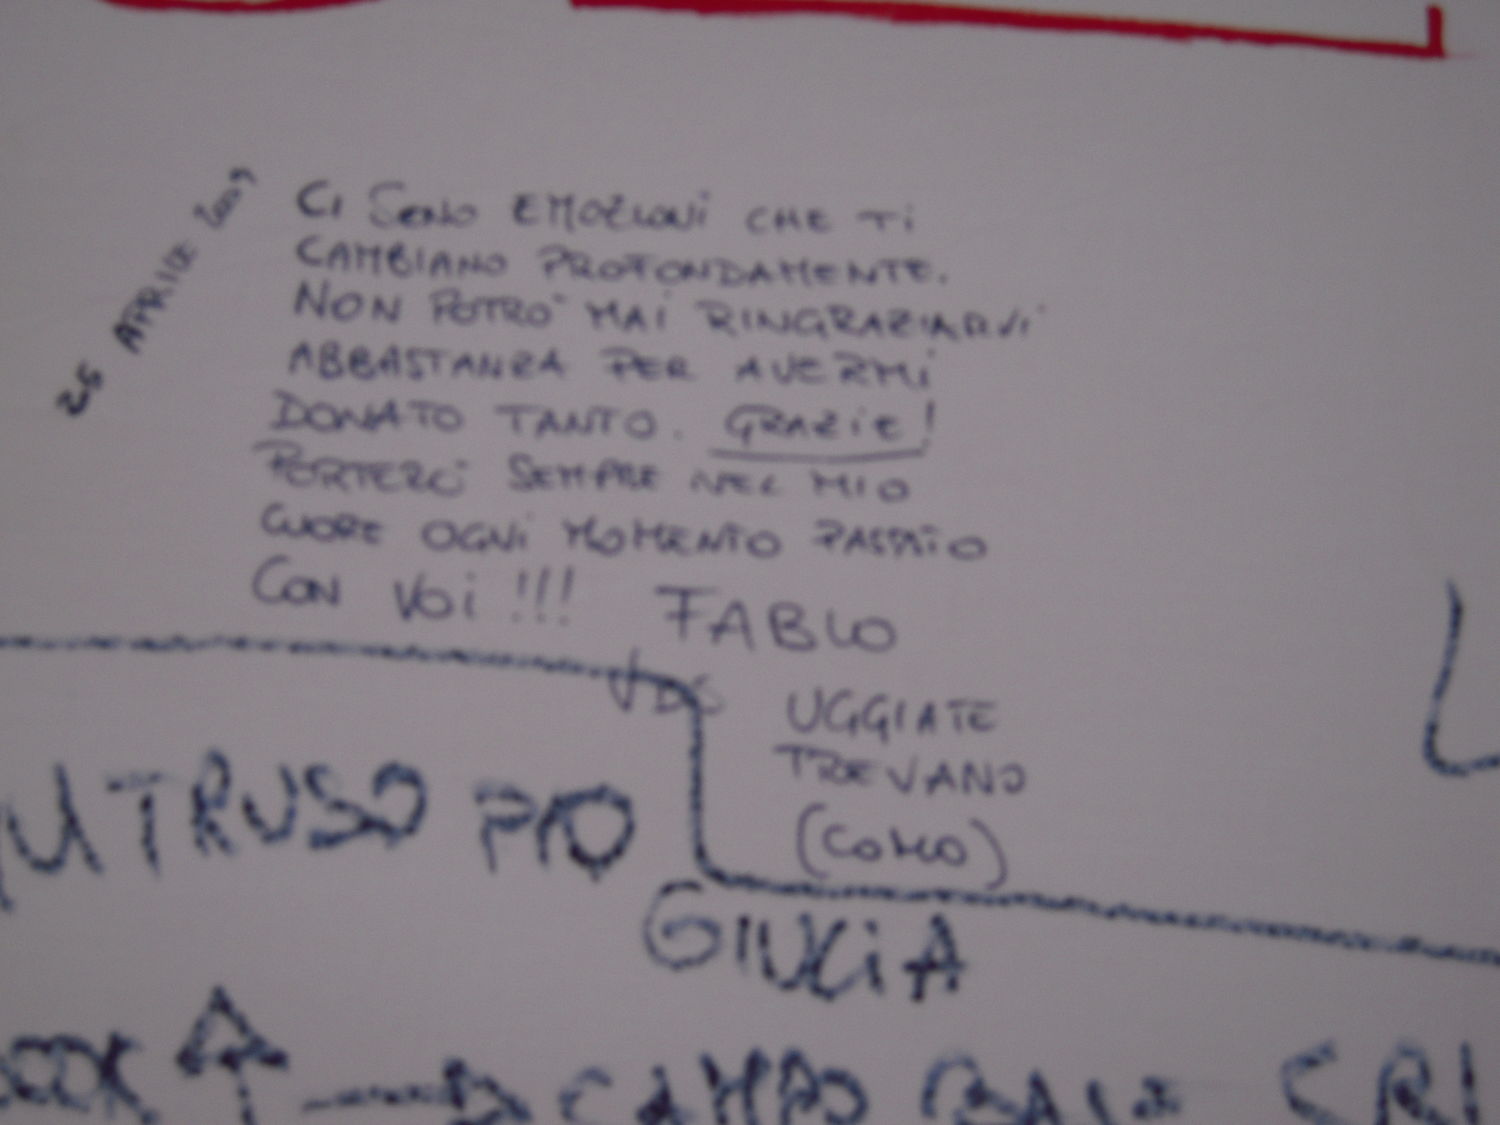 26 APRILE 2009
CI SONO EMOZIONI CHE TI
CAMBIANO PROFONDAMENTE.
NON POTRÒ MAI RINGRAZIARVI
ABBASTANZA PER AVERMI
DONATO TANTO. GRAZIE!
PORTERÒ SEMPRE NEL MIO
CUORE OGNI MOMENTO PASSATO
CON VOI!!! FABIO
UGGIATE
TREVANO
(COMO)
INTRUSO PIO
GIULIA
CAMPO BASE CRI